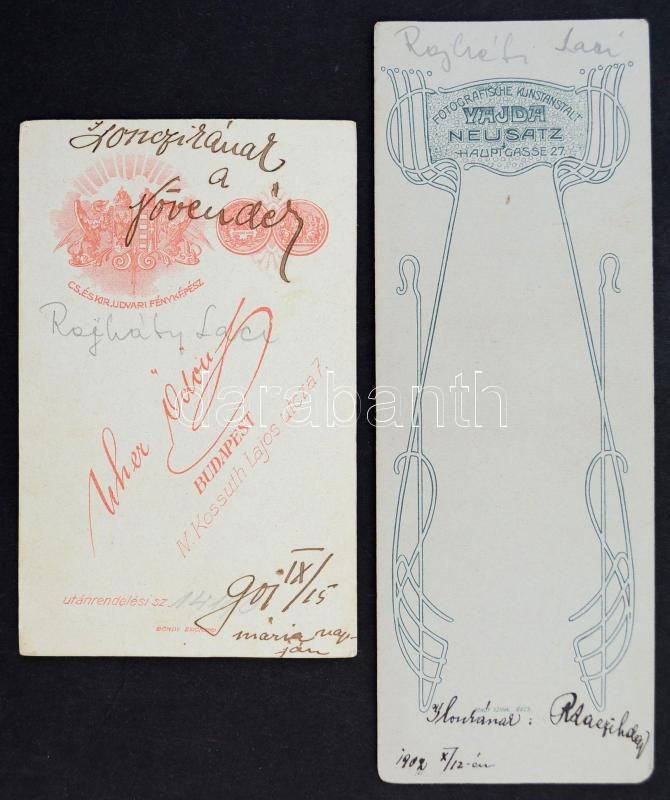 a
CS. ÉS KIR. UDVARI FÉNYKÉPÉSZ
Rajháty Laci
Uher Ödön
BUDAPEST
IV. Kossuth Lajos utcza 7.
utánrendelési sz.
901 IX/15
mária nap-
ján
Laci
FOTOGRAFISCHE KUNSTANSTALT
VAJDA
NEUSATZ
HAUPTGASSE 27.
Ilonkának:
1902 X/12-én
darabanth